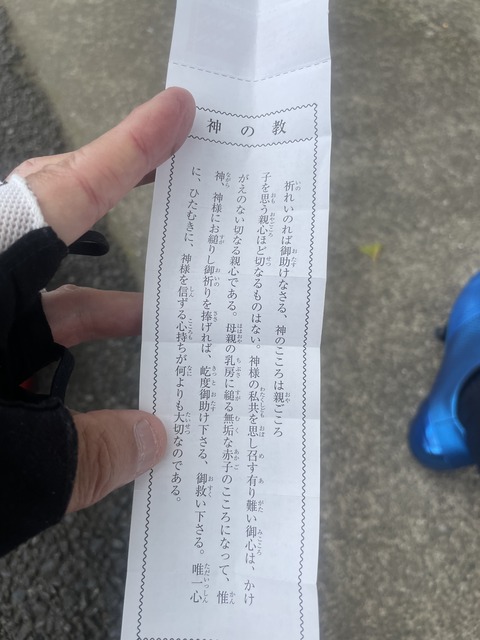 神の教
祈れいのれば御助けなさる、神のこころは親ごころ
子を思う親心ほど切なるものはない。神様の私共を思し召す有り難い御心は、かけ
がえのない切なる親心である。母親の乳房に縋る無垢な赤子のこころになって、惟
神、神様にお縋りし御祈りを捧げれば、屹度御助け下さる、御救い下さる。唯一心
に、ひたむきに、神様を信ずる心持ちが何よりも大切なのである。